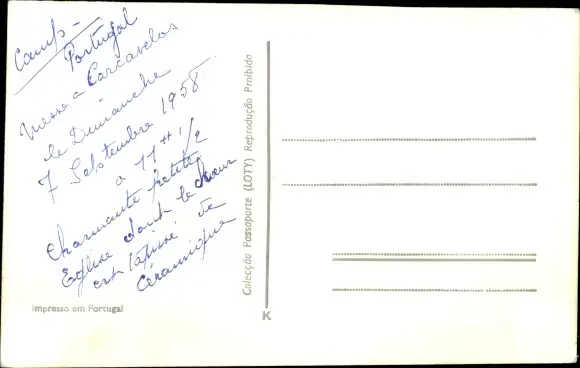 Camp-
Portugal
Messe a Carcavelos
le Dimanche
7 Septembre 1958
a 11 H 1/2
Charmante petite
Eglise dont le choeur
est tapissé de
Céramique
Impresso em Portugal
Colecção Passaporte (LOTY) Reprodução Proibida
K